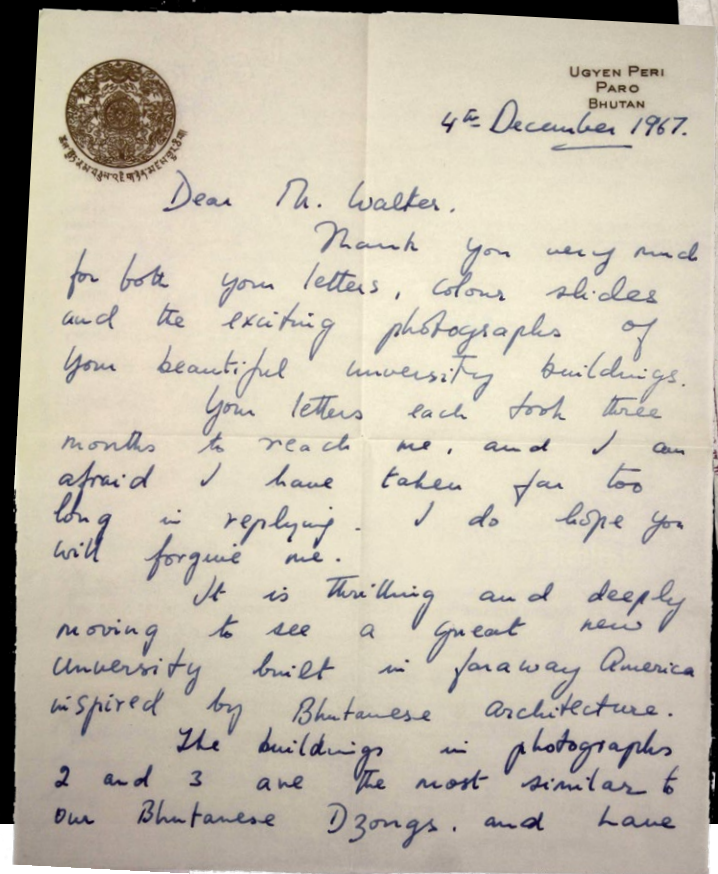 UGYEN PERI
PARO
BHUTAN
4th December 1967.
Dear Mr. Walker.
Thank you very much
for both your letters, colour slides
and the exciting photographs of
your beautiful university buildings.
Your letters each took three
months to reach me, and I am
afraid I have taken far too
long in replying. I do hope you
will forgive me.
It is thrilling and deeply
moving to see a great new
university built in faraway America
inspired by Bhutanese architecture.
The buildings in photographs
2 and 3 are the most similar to
our Bhutanese Dzongs. and have